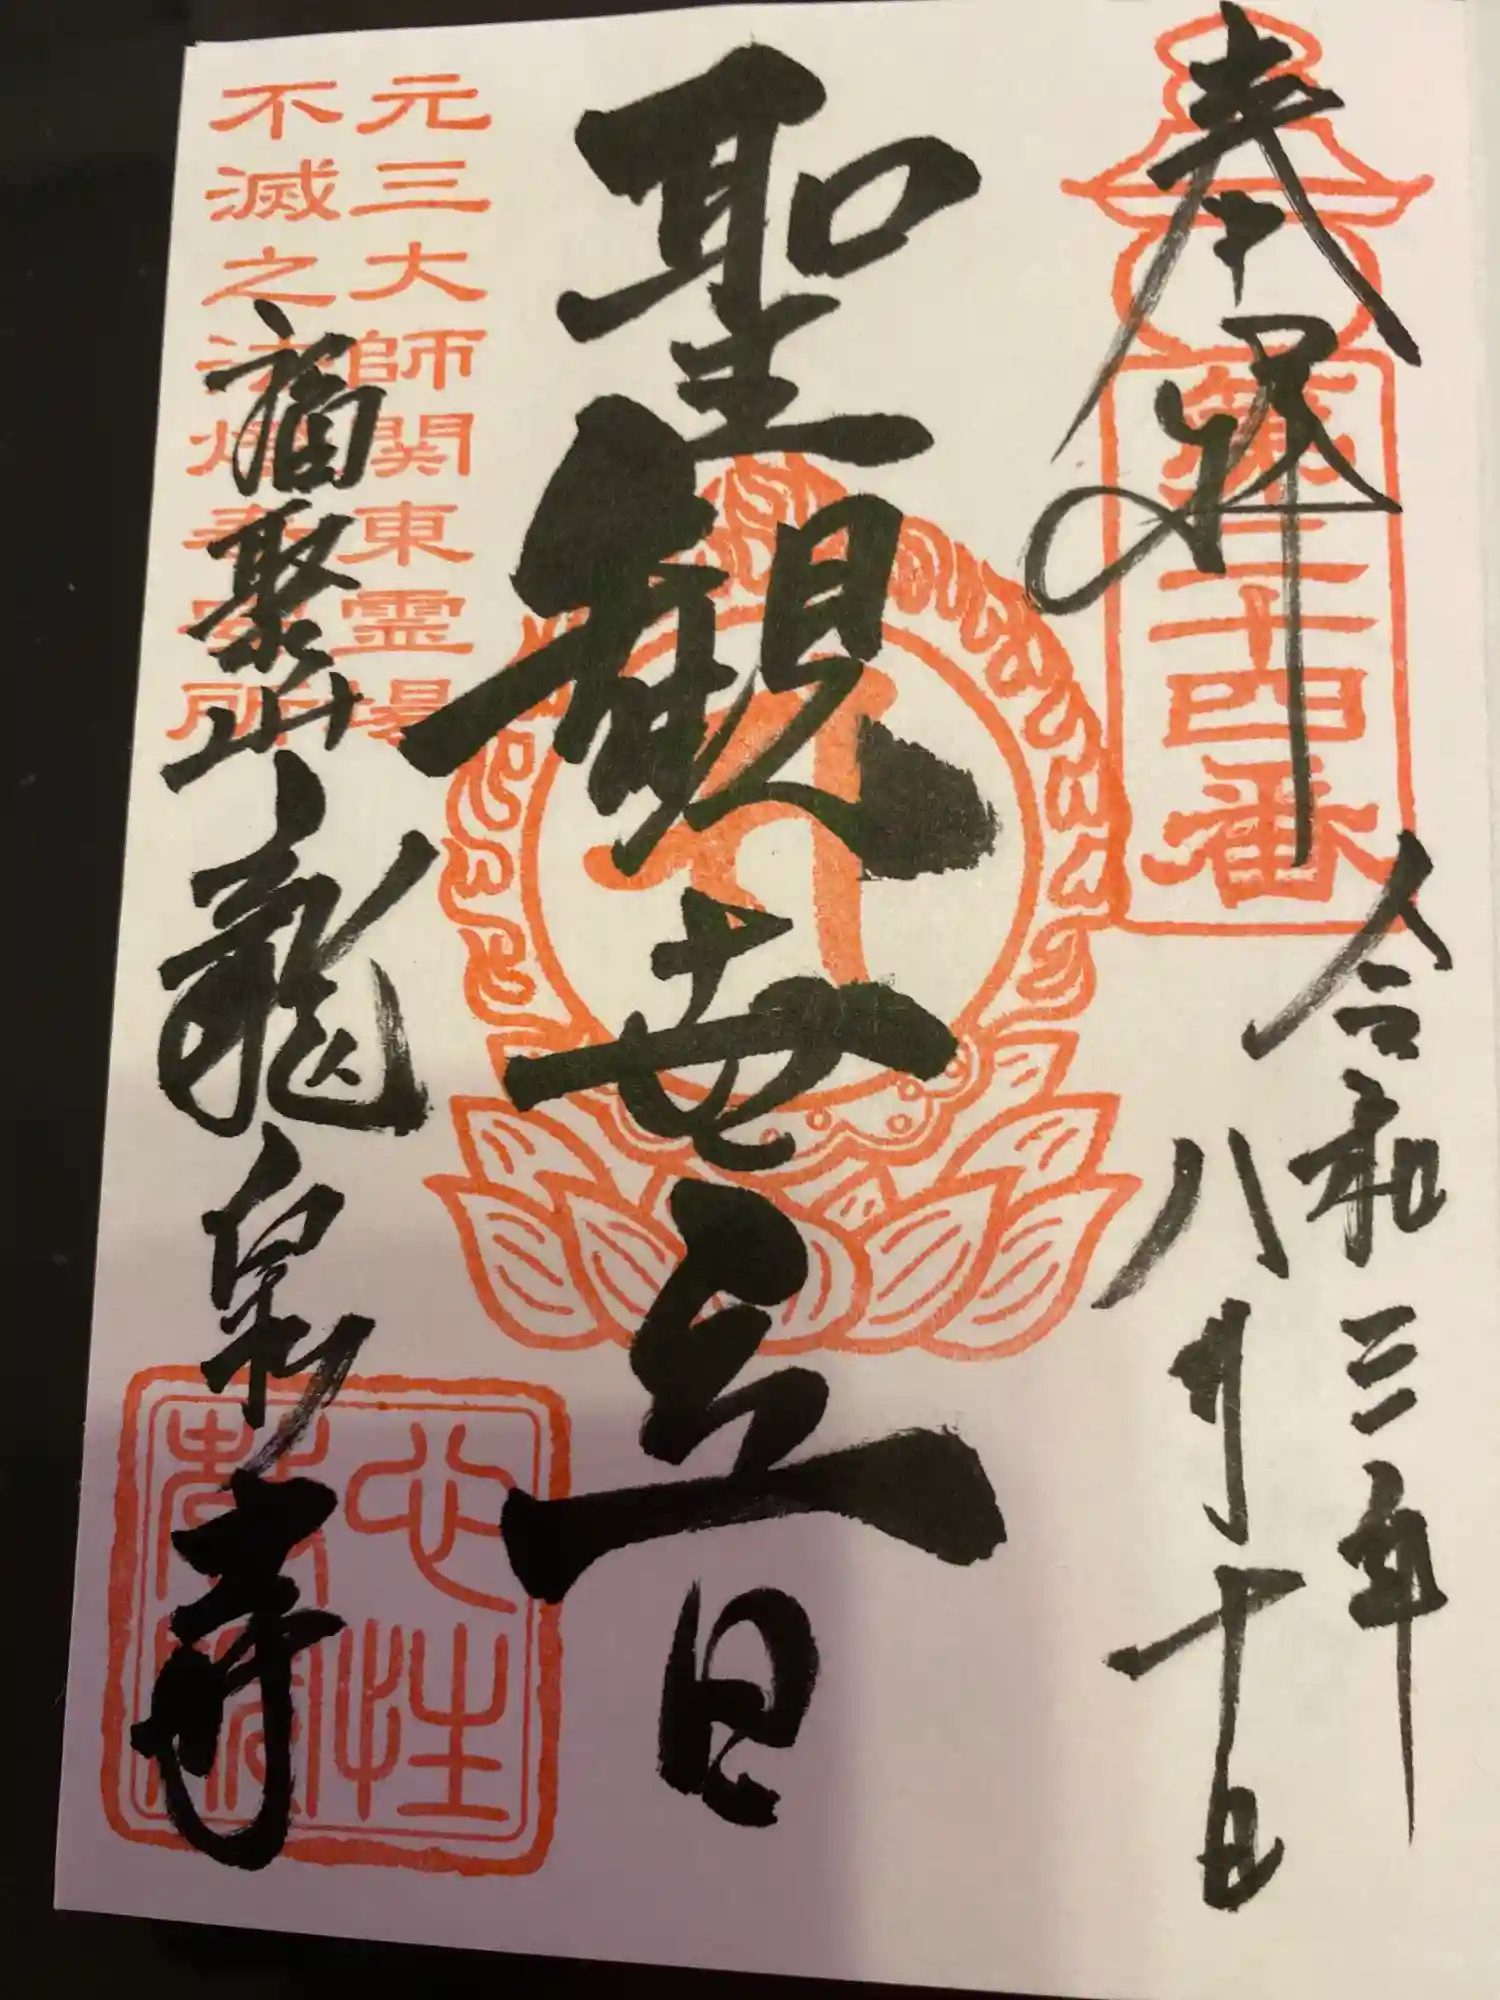 奉拝
第三十四番
令和三年
八月十日
聖観世音
元三大師関東霊場
不滅之法燈奉安所
福聚山
龍泉寺
心性